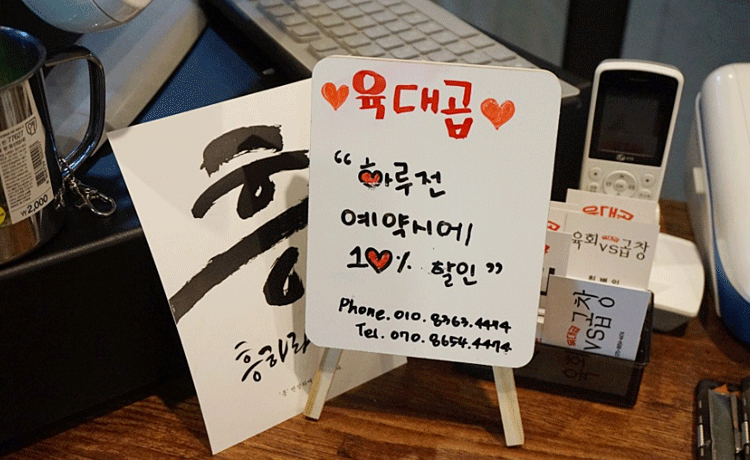 육대곱
“하루전
예약시에
10% 할인”
Phone. 010. 8363.4474
Tel. 070. 8654.4474
흥
흥하라
₩2,000
육회
VS곱창
곱창
VS
육회